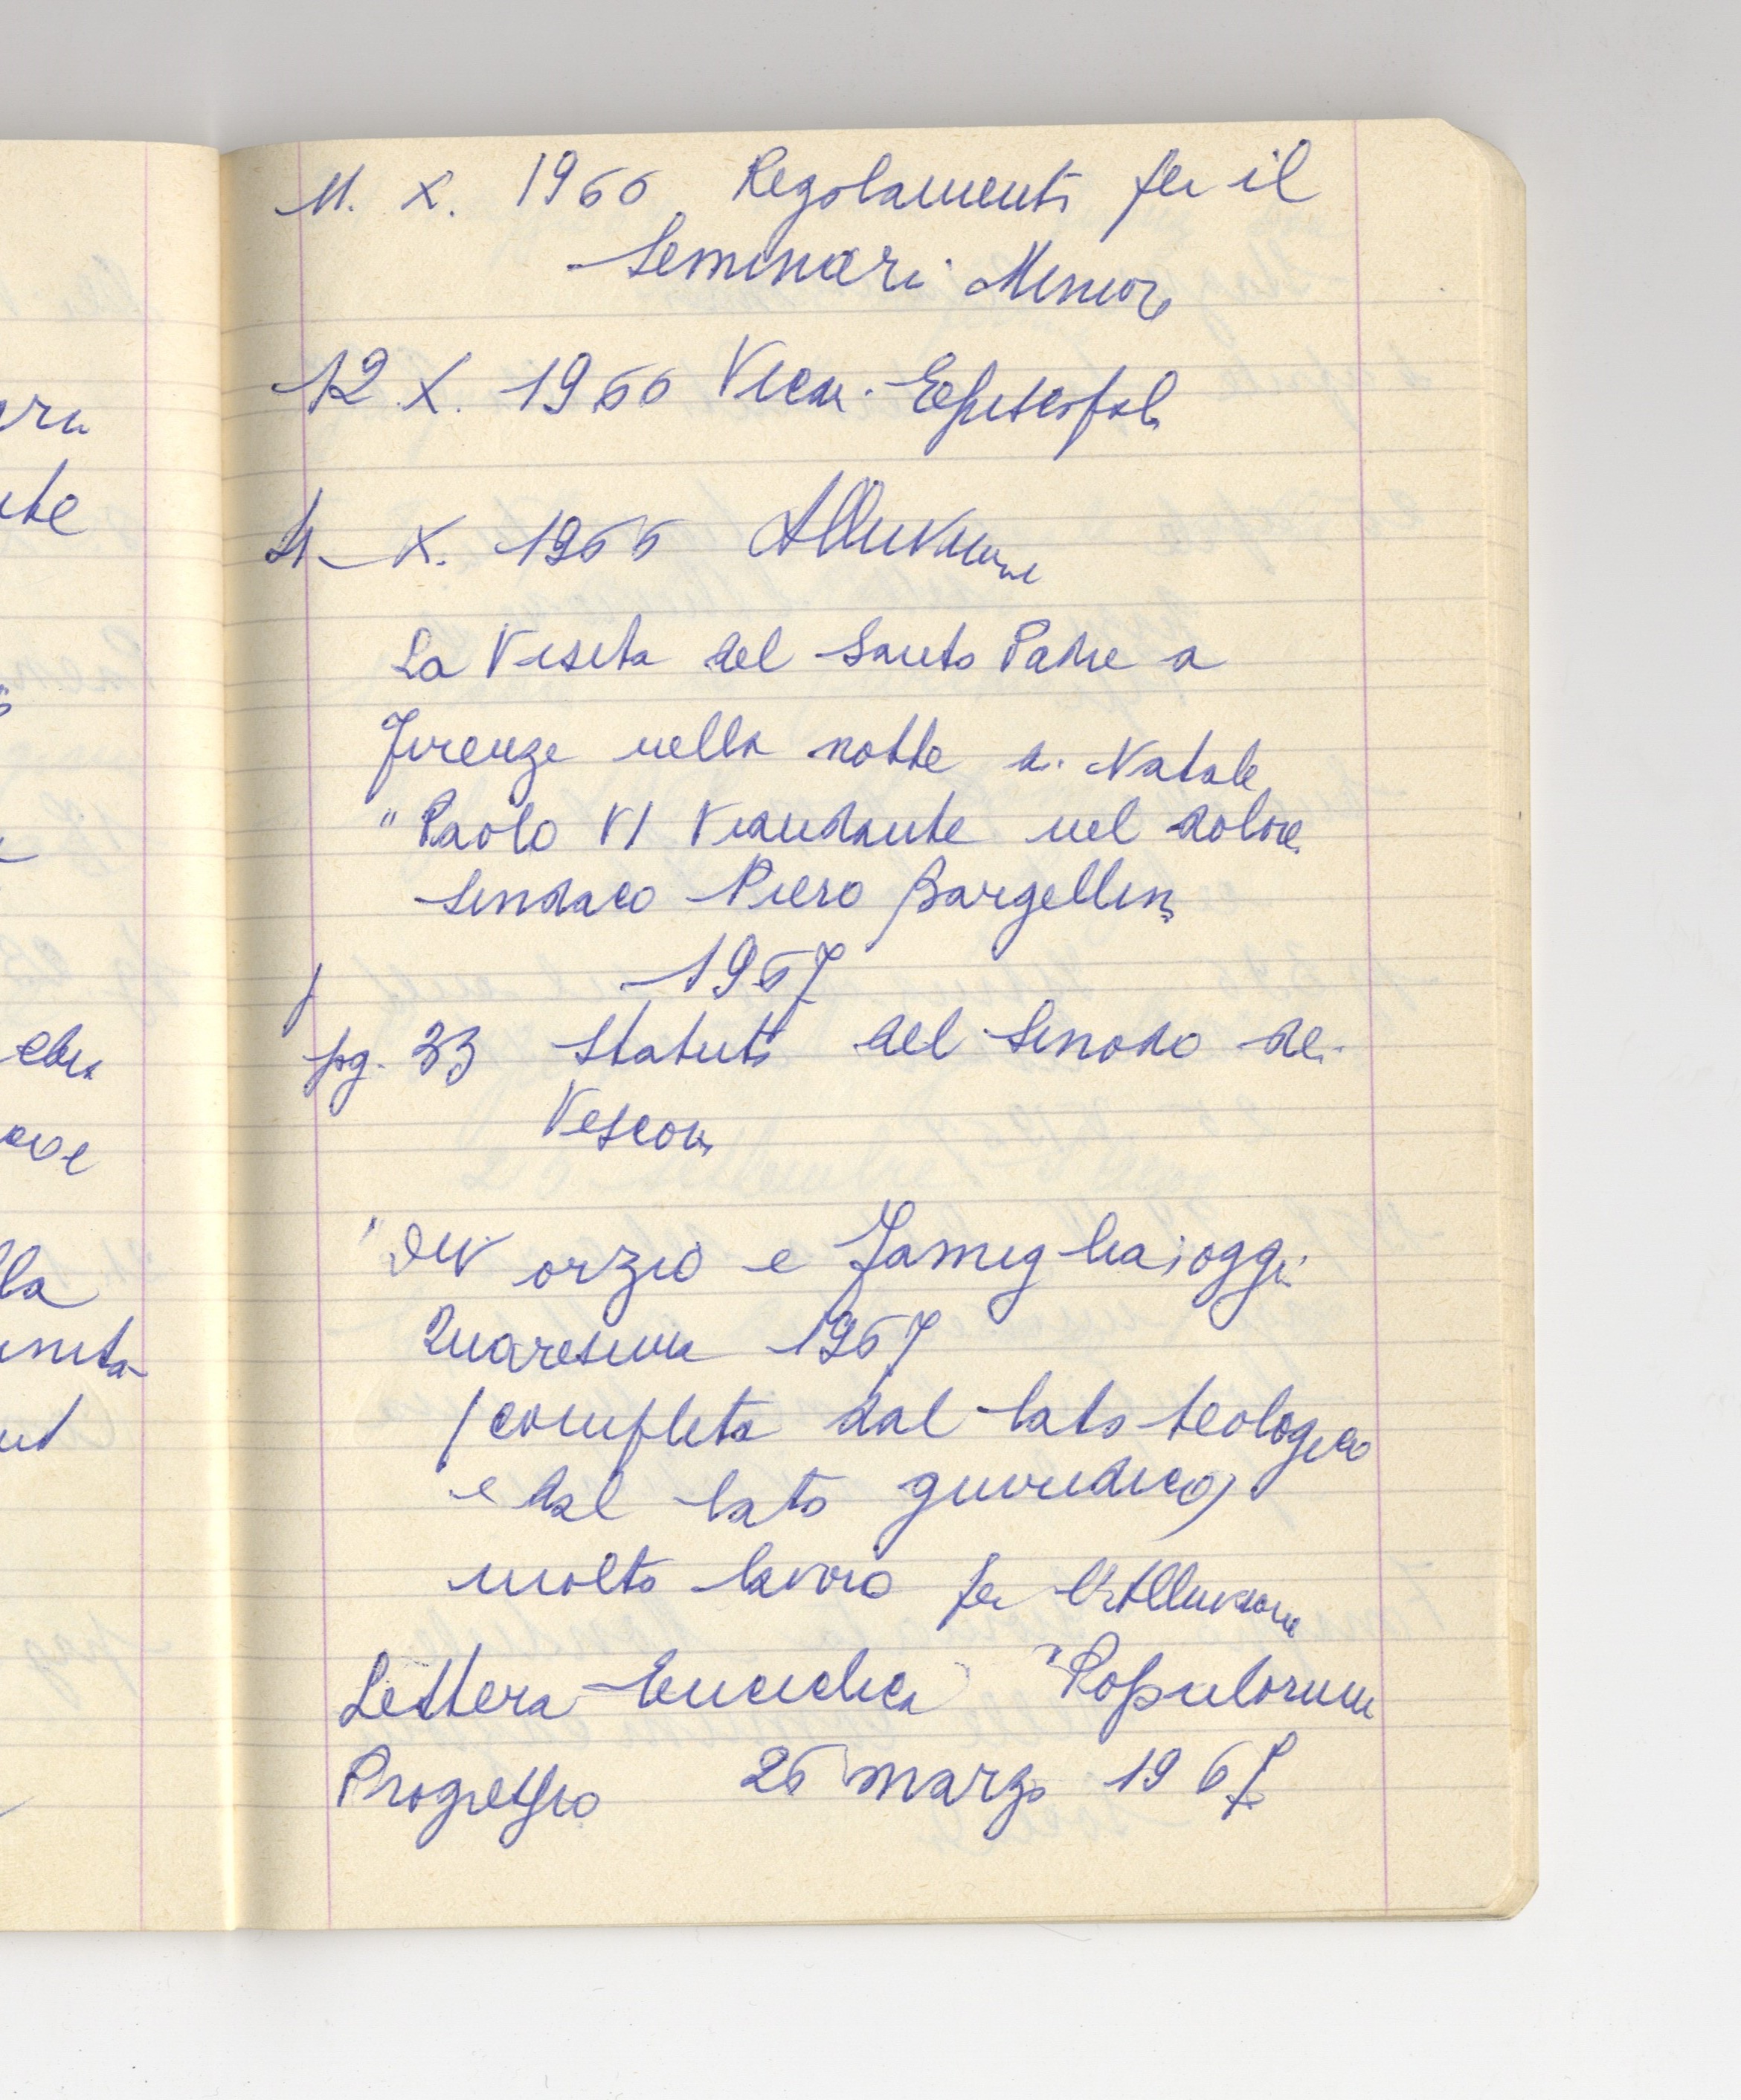 11. X. 1966 Regolamento per il
Seminario Minore
12. X. 1966 Vicar. Episcopali
X. 1966 Alluvione
La Visita del Santo Padre a
Firenze nella notte di Natale
" Paolo VI Viandante nel dolore
Sindaco Piero Bargellini
1967
pg. 33 Statuto del Sinodo dei
Vescovi
" Divorzio e Famiglia, oggi
Quaresima 1967
(completa dal lato teologico
e dal lato giuridico)
molto lavoro per l'Alluvione
Lettera Enciclica "Populorum
Progressio 26 marzo 1967